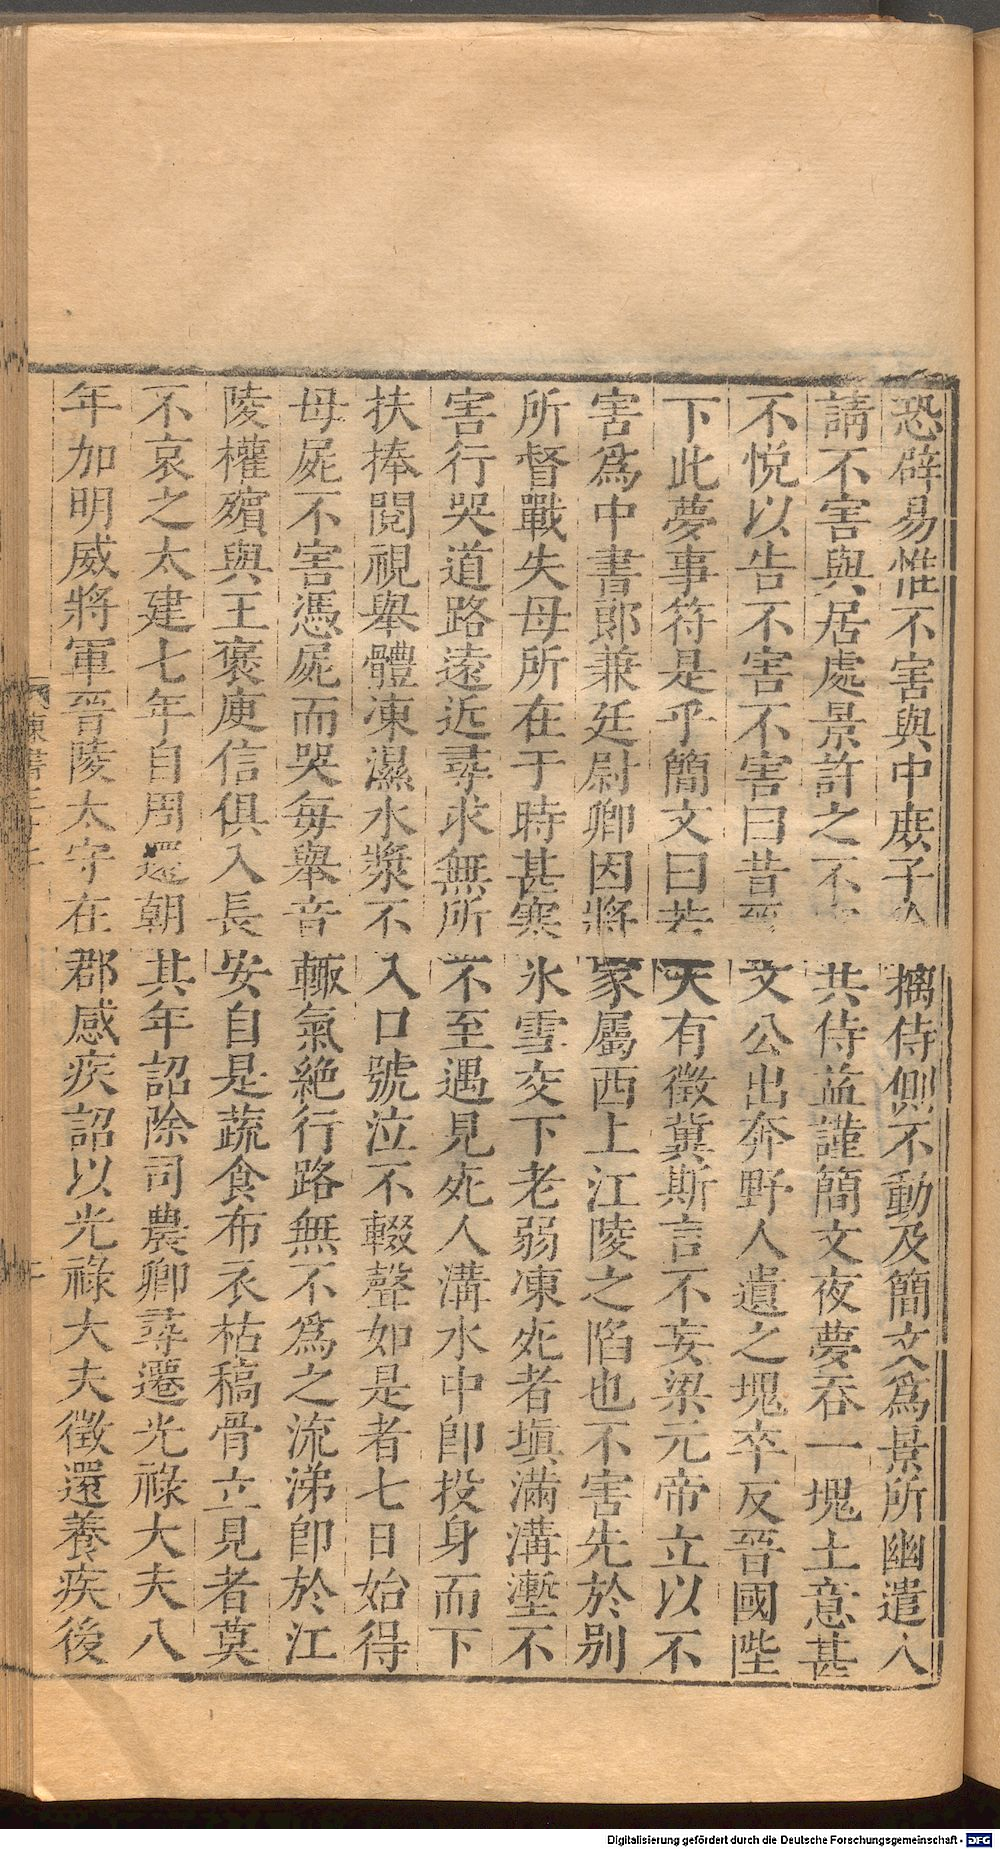 恐辟易惟不害與中庶子摛侍側不動及簡文爲景所幽遣人
請不害與居處景許之不共侍益謹簡文夜夢吞一塊土意甚
不悅以告不害不害曰昔晉文公出奔野人遺之塊卒反晉國陛
下此夢事符是乎簡文曰若天有徵冀斯言不妄梁元帝立以不
害爲中書郎兼廷尉卿因將家屬西上江陵之陷也不害先於别
所督戰失母所在于時甚寒氷雪交下老弱凍死者塡滿溝壍不
害行哭道路遠近尋求無所不至遇見死人溝水中卽投身而下
扶捧閱視舉體凍濕水漿不入口號泣不輟聲如是者七日始得
母屍不害憑屍而哭每舉音輙氣絕行路無不爲之流涕卽於江
陵權殯與王褒庾信俱入長安自是蔬食布衣枯稿骨立見者莫
不哀之太建七年自周還朝其年詔除司農卿尋遷光祿大夫八
年加明威將軍晉陵太守在郡感疾詔以光祿大夫徵還養疾後
陳書
Digitalisierung gefördert durch die Deutsche Forschungsgemeinschaft - DFG